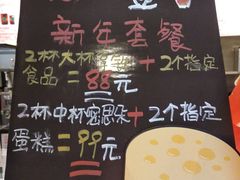 新年套餐
2杯大杯 + 2个指定
食品 = 88元
2杯中杯密思朵 + 2个指定
蛋糕 = 99元